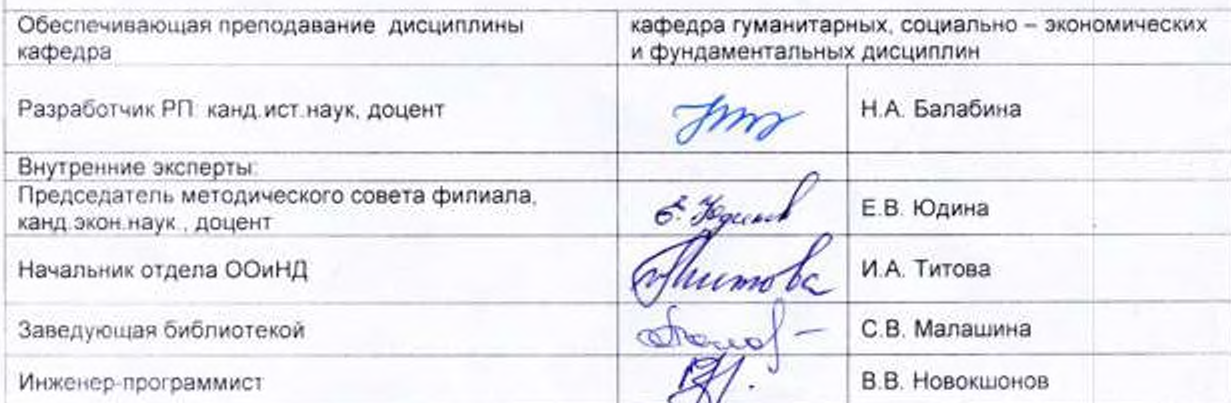 Обеспечивающая преподавание дисциплины
кафедра
кафедра гуманитарных, социально – экономических
и фундаментальных дисциплин
Разработчик РП: канд.ист.наук, доцент
Н.А. Балабина
Внутренние эксперты:
Председатель методического совета филиала,
канд.экон.наук., доцент
Е. Юдина
Е.В. Юдина
Начальник отдела ООиНД
Титова
И.А. Титова
Заведующая библиотекой
С.В. Малашина
Инженер-программист
В.В. Новокшонов